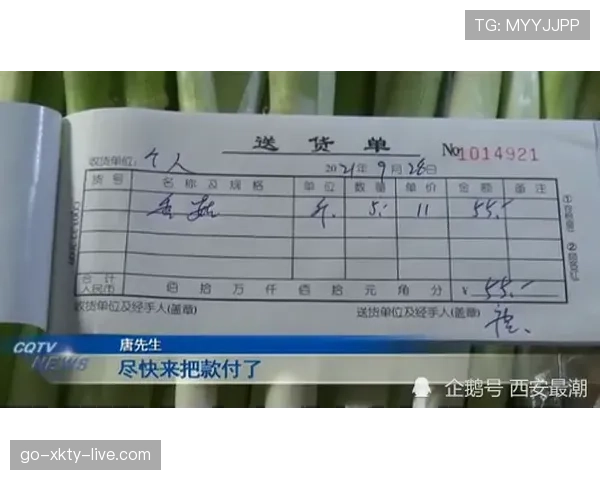 TG: MYYJJPP
送货单 No 1014921
收货单位: 个人 2021年9月28日
货号 名称及规格 单位 数量 单价 金额 备注
香菇 斤 5 11 55.-
合计人民币 佰拾万仟佰拾元角分 ¥ 55.-
收货单位及经手人(盖章) 送货单位及经手人(盖章)
CQTV 唐先生
NEWS 尽快来把款付了
企鹅号 西安最潮
go-xkty-live.com